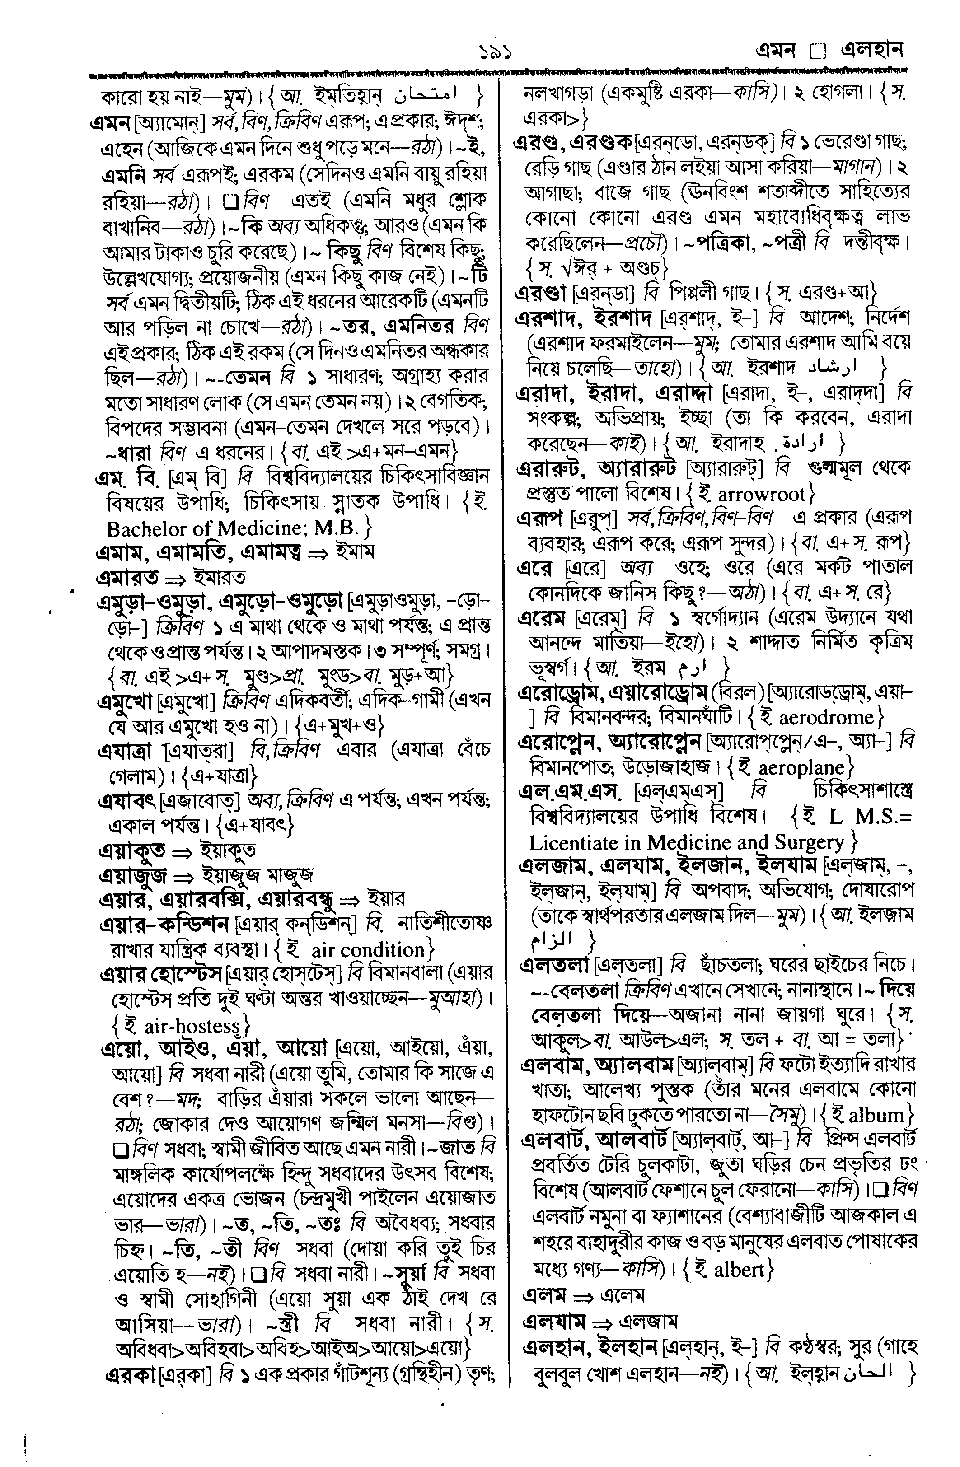 ১৯১
এমন □ এলহান
কারো হয় নাই—মুম)। {আ. ইমতিহান্ امتحان }
এমন [অ্যামোন্] সর্ব, বিণ, ক্রিবিণ এরূপ; এ প্রকার; ঈদৃশ;
এহেন (আজিকে এমন দিনে শুধু পড়ে মনে—রঠা)। ~ই,
এমনি সর্ব এরূপই; এরকম (সেদিনও এমনি বায়ু রহিয়া
রহিয়া—রঠা)। □ বিণ এতই (এমনি মধুর শ্লোক
বাখানিব—রঠা)। ~কি অব্য অধিকন্তু; আরও (এমন কি
আমার টাকাও চুরি করেছে)। ~ কিছু বিণ বিশেষ কিছু;
উল্লেখযোগ্য; প্রয়োজনীয় (এমন কিছু কাজ নেই)। ~টি
সর্ব এমন দ্বিতীয়টি; ঠিক এই ধরনের আরেকটি (এমনটি
আর পড়িল না চোখে—রঠা)। ~তর, এমনিতর বিণ
এইপ্রকার; ঠিক এই রকম (সে দিনও এমনিতর অন্ধকার
ছিল—রঠা)। ~-তেমন বি ১ সাধারণ; অগ্রাহ্য করার
মতো সাধারণ লোক (সে এমন তেমন নয়)। ২ বেগতিক;
বিপদের সম্ভাবনা (এমন–তেমন দেখলে সরে পড়বে)।
~ধারা বিণ এ ধরনের। {বা. এই >এ+মন–এমন}
এম. বি. [এম্ বি] বি বিশ্ববিদ্যালয়ের চিকিৎসাবিজ্ঞান
বিষয়ের উপাধি; চিকিৎসায় স্নাতক উপাধি। {ই.
Bachelor of Medicine; M.B. }
এমাম, এমামতি, এমামত্ব ⇒ ইমাম
এমারত ⇒ ইমারত
এমুড়া–ওমুড়া, এমুড়ো–ওমুড়ো [এমুড়াওমুড়া, -ড়ো–
ড়ো–] ক্রিবিণ ১ এ মাথা থেকে ও মাথা পর্যন্ত; এ প্রান্ত
থেকে ও প্রান্ত পর্যন্ত। ২ আপাদমস্তক। ৩ সম্পূর্ণ; সমগ্র।
{বা. এই >এ+ স. মুণ্ড>প্রা. মুংড>বা. মুড়+আ}
এমুখো [এমুখো] ক্রিবিণ এদিকবর্তী; এদিক–গামী (এখন
যে আর এমুখো হও না)। {এ+মুখ+ও}
এযাত্রা [এযাত্‌রা] বি, ক্রিবিণ এবার (এযাত্রা বেঁচে
গেলাম)। {এ+যাত্রা}
এযাবৎ [এজাবোত্] অব্য, ক্রিবিণ এ পর্যন্ত; এখন পর্যন্ত;
একাল পর্যন্ত। {এ+যাবৎ}
এয়াকুত ⇒ ইয়াকুত
এয়াজুজ ⇒ ইয়াজুজ মাজুজ
এয়ার, এয়ারবক্সি, এয়ারবন্ধু ⇒ ইয়ার
এয়ার–কন্ডিশন [এয়ার্ কন্‌ডিশন্] বি. নাতিশীতোষ্ণ
রাখার যান্ত্রিক ব্যবস্থা। {ই. air condition}
এয়ার হোস্টেস [এয়ার্ হোস্‌টেস্] বি বিমানবালা (এয়ার
হোস্টেস প্রতি দুই ঘণ্টা অন্তর খাওয়াচ্ছেন—মুআহা)।
{ই. air-hostess}
এয়ো, আইও, এঁয়া, আয়ো [এয়ো, আইয়ো, এঁয়া,
আয়ো] বি সধবা নারী (এয়ো তুমি, তোমার কি সাজে এ
বেশ?—মদ; বাড়ির এঁয়ারা সকলে ভালো আছেন—
রঠা; জোকার দেও আয়োগণ জন্মিল মনসা—বিগু)।
□ বিণ সধবা; স্বামী জীবিত আছে এমন নারী। ~জাত বি
মাঙ্গলিক কার্যোপলক্ষে হিন্দু সধবাদের উৎসব বিশেষ;
এয়োদের একত্র ভোজন (চন্দ্রমুখী পাইলেন এয়োজাত
ভার—ভারা)। ~ত, ~তি, ~তঃ বি অবৈধব্য; সধবার
চিহ্ন। ~তি, ~তী বিণ সধবা (দোয়া করি তুই চির
এয়োতি হ—নই)। □ বি সধবা নারী। ~সুয়া বি সধবা
ও স্বামী সোহাগিনী (এয়ো সুয়া এক ঠাঁই দেখ রে
আসিয়া—ভারা)। ~স্ত্রী বি সধবা নারী। {স.
অবিধবা>অবিহবা>অবিহ>আইঅ>আয়ো>এয়ো}
এরকা [এর্‌কা] বি ১ এক প্রকার গাঁটশূন্য (গ্রন্থিহীন) তৃণ;
নলখাগড়া (একমুষ্টি এরকা—কাসি)। ২ হোগলা। {স.
এরকা>}
এরণ্ড, এরণ্ডক [এরন্‌ডো, এরন্‌ডক্] বি ১ ভেরেণ্ডা গাছ;
রেড়ি গাছ (এণ্ডার ঠান লইয়া আসা করিয়া—মাগান)। ২
আগাছা; বাজে গাছ (ঊনবিংশ শতাব্দীতে সাহিত্যের
কোনো কোনো এরণ্ড এমন মহাবোধিবৃক্ষত্ব লাভ
করেছিলেন—প্রচৌ)। ~পত্রিকা, ~পত্রী বি দন্তীবৃক্ষ।
{স. √ঈর + অণ্ডচ}
এরণ্ডা [এরন্‌ডা] বি পিপ্পলী গাছ। {স. এরণ্ড+আ}
এরশাদ, ইরশাদ [এরশাদ্, ই–] বি আদেশ; নির্দেশ
(এরশাদ ফরমাইলেন—মুম; তোমার এরশাদ আমি বয়ে
নিয়ে চলেছি—তাহো)। {আ. ইরশাদ ارشاد }
এরাদা, ইরাদা, এরাদ্দা [এরাদা, ই–, এরাদ্‌দা] বি
সংকল্প; অভিপ্রায়; ইচ্ছা (তা কি করবেন, এরাদা
করেছেন—কাই)। {আ. ইরাদাহ্ ارادة. }
এরারুট, অ্যারারুট [অ্যারারুট্] বি গুল্মমূল থেকে
প্রস্তুত পালো বিশেষ। {ই. arrowroot}
এরূপ [এরুপ্] সর্ব, ক্রিবিণ, বিণ–বিণ এ প্রকার (এরূপ
ব্যবহার; এরূপ করে; এরূপ সুন্দর)। {বা. এ+স. রূপ}
এরে [এরে] অব্য ওহে; ওরে (এরে মর্কট পাতাল
কোনদিকে জানিস কিছু?—অঠা)। {বা. এ+ স. রে}
এরেম [এরেম্] বি ১ স্বর্গোদ্যান (এরেম উদ্যানে যথা
আনন্দে মাতিয়া—ইহো)। ২ শাদ্দাত নির্মিত কৃত্রিম
ভূস্বর্গ। {আ. ইরম ارم }
এরোড্রোম, এয়ারোড্রোম (বিরল) [অ্যারোডড্রোম্, এয়া–
] বি বিমানবন্দর; বিমানঘাঁটি। {ই. aerodrome}
এরোপ্লেন, অ্যারোপ্লেন [অ্যারোপ্‌প্লেন্/এ–, অ্যা–] বি
বিমানপোত; উড়োজাহাজ। {ই. aeroplane}
এল.এম.এস. [এল্‌এম্‌এস্] বি চিকিৎসাশাস্ত্রে
বিশ্ববিদ্যালয়ের উপাধি বিশেষ। {ই. L M.S.=
Licentiate in Medicine and Surgery }
এলজাম, এলযাম, ইলজান, ইলযাম [এল্‌জাম্, -,
ইল্‌জান্, ইল্‌যাম্] বি অপবাদ; অভিযোগ; দোষারোপ
(তাকে স্বার্থপরতার এলজাম দিল—মুম)। {আ. ইলজাম
الزام }
এলতলা [এল্‌তলা] বি ছাঁচতলা; ঘরের ছাইচের নিচে।
~-বেলতলা ক্রিবিণ এখানে সেখানে; নানাস্থানে। ~ দিয়ে
বেলতলা দিয়ে—অজানা নানা জায়গা ঘুরে। {স.
আকুল>বা. আউল>এল; স. তল + বা. আ = তলা}
এলবাম, অ্যালবাম [অ্যাল্‌বাম্] বি ফটো ইত্যাদি রাখার
খাতা; আলেখ্য পুস্তক (তাঁর মনের এলবামে কোনো
হাফটোন ছবি ঢুকতে পারতো না—সৈমু)। {ই. album}
এলবার্ট, আলবার্ট [অ্যাল্‌বার্ট্, আ–] বি প্রিন্স এলবার্ট
প্রবর্তিত টেরি চুলকাটা, জুতা ঘড়ির চেন প্রভৃতির ঢং
বিশেষ (আলবার্ট ফেশানে চুল ফেরানো—কাসি)। □ বিণ
এলবার্ট নমুনা বা ফ্যাশানের (বেশ্যাবাজীটি আজকাল এ
শহরে বাহাদুরীর কাজ ও বড় মানুষের এলবাত পোষাকের
মধ্যে গণ্য—কাসি)। {ই. albert}
এলম ⇒ এলেম
এলযাম ⇒ এলজাম
এলহান, ইলহান [এল্‌হান্, ই–] বি কণ্ঠস্বর; সুর (গাহে
বুলবুল খোশ এলহান—নই)। {আ. ইল্‌হান الحان }